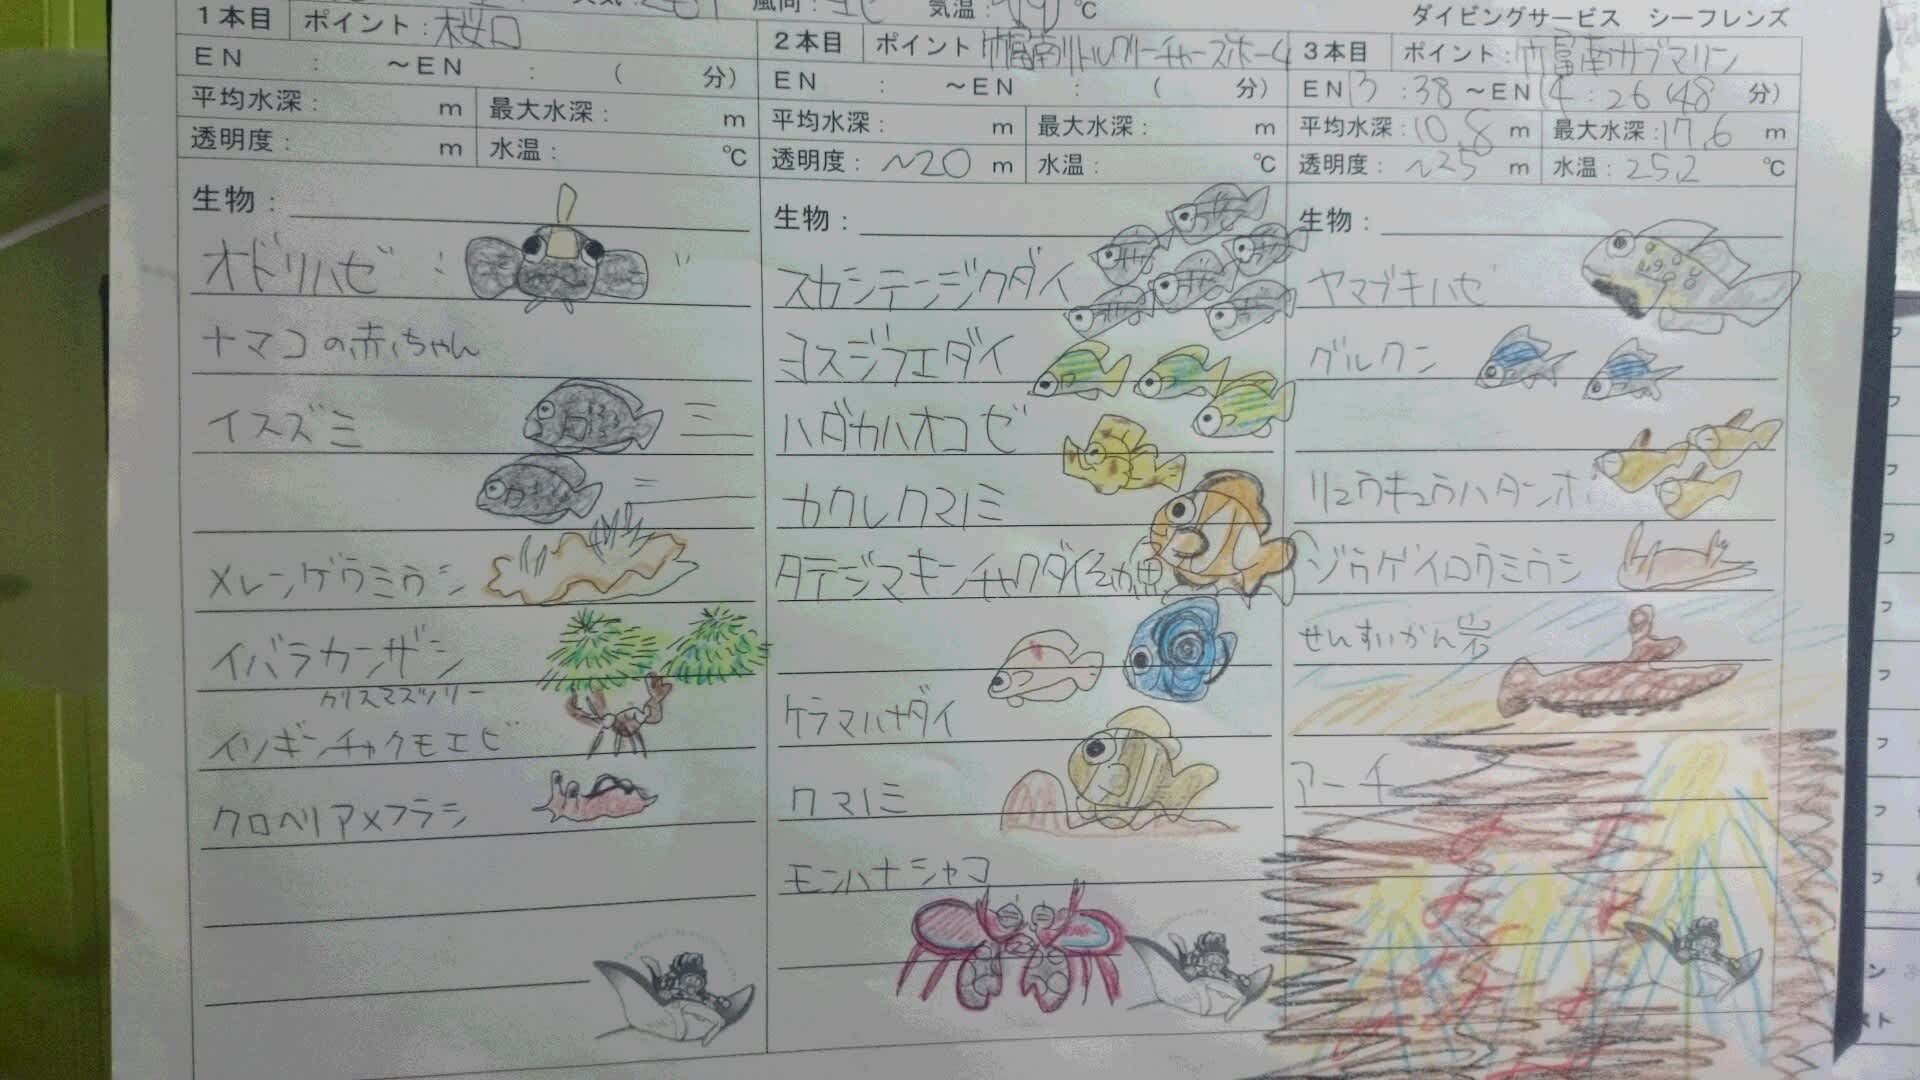 風向: 北 気温: ℃
ダイビングサービス シーフレンズ
1本目 ポイント: 桜口
EN : ～EN : ( 分)
平均水深: m 最大水深: m
透明度: m 水温: ℃
生物:
オドリハゼ :
ナマコの赤ちゃん
イスズミ
メレンゲウミウシ
イバラカンザシ
クリスマスツリー
イソギンチャクモエビ
クロヘリアメフラシ
2本目 ポイント 竹富南リトルクリーチャーズホーム
EN : ～EN : ( 分)
平均水深: m 最大水深: m
透明度: ～20 m 水温: ℃
生物:
スカシテンジクダイ
ヨスジフエダイ
ハダカハオコゼ
カクレクマノミ
タテジマキンチャクダイ幼魚
ケラマハナダイ
クマノミ
モンハナシャコ
3本目 ポイント: 竹富南サブマリン
EN 13:38 ～EN 14:26 (48 分)
平均水深: 10.8 m 最大水深: 17.6 m
透明度: ～25 m 水温: 25.2 ℃
生物:
ヤマブキハゼ
グルクン
リュウキュウハタンポ
ゾウゲイロウミウシ
せんすいかん岩
アーチ